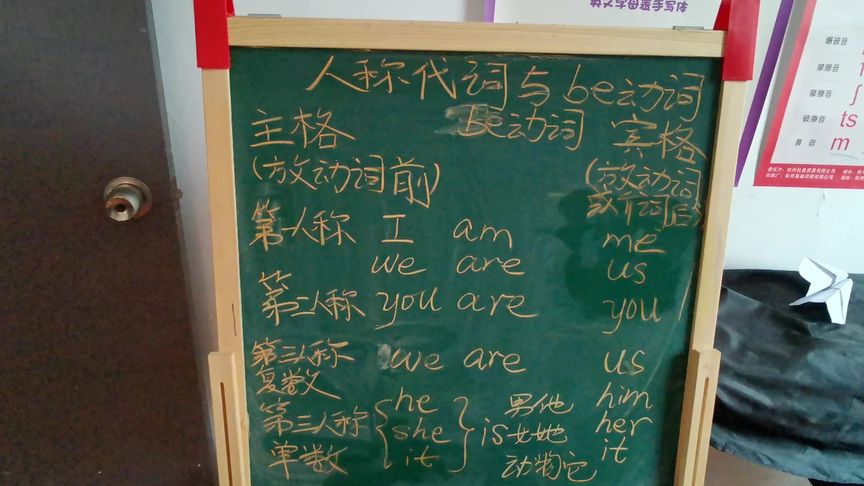 英文字母表手写体
爆破音
摩擦音
摩擦音 ʃ
破擦音 ts
鼻音 m
人称代词与be动词
主格 be动词 宾格
(放动词前) (放动词
或介词后)
第一人称 I am me
we are us
第二人称 you are you
第三人称 we are us
复数
第三人称 he 男他 him
she is 女她 her
单数 it 动物它 it